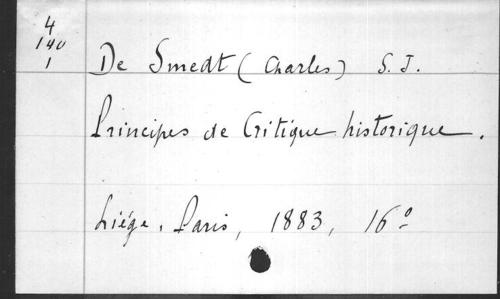 4
140
1
De Smedt (Charles) S. J.
Principes de Critique historique.
Liége. Paris, 1883, 16°